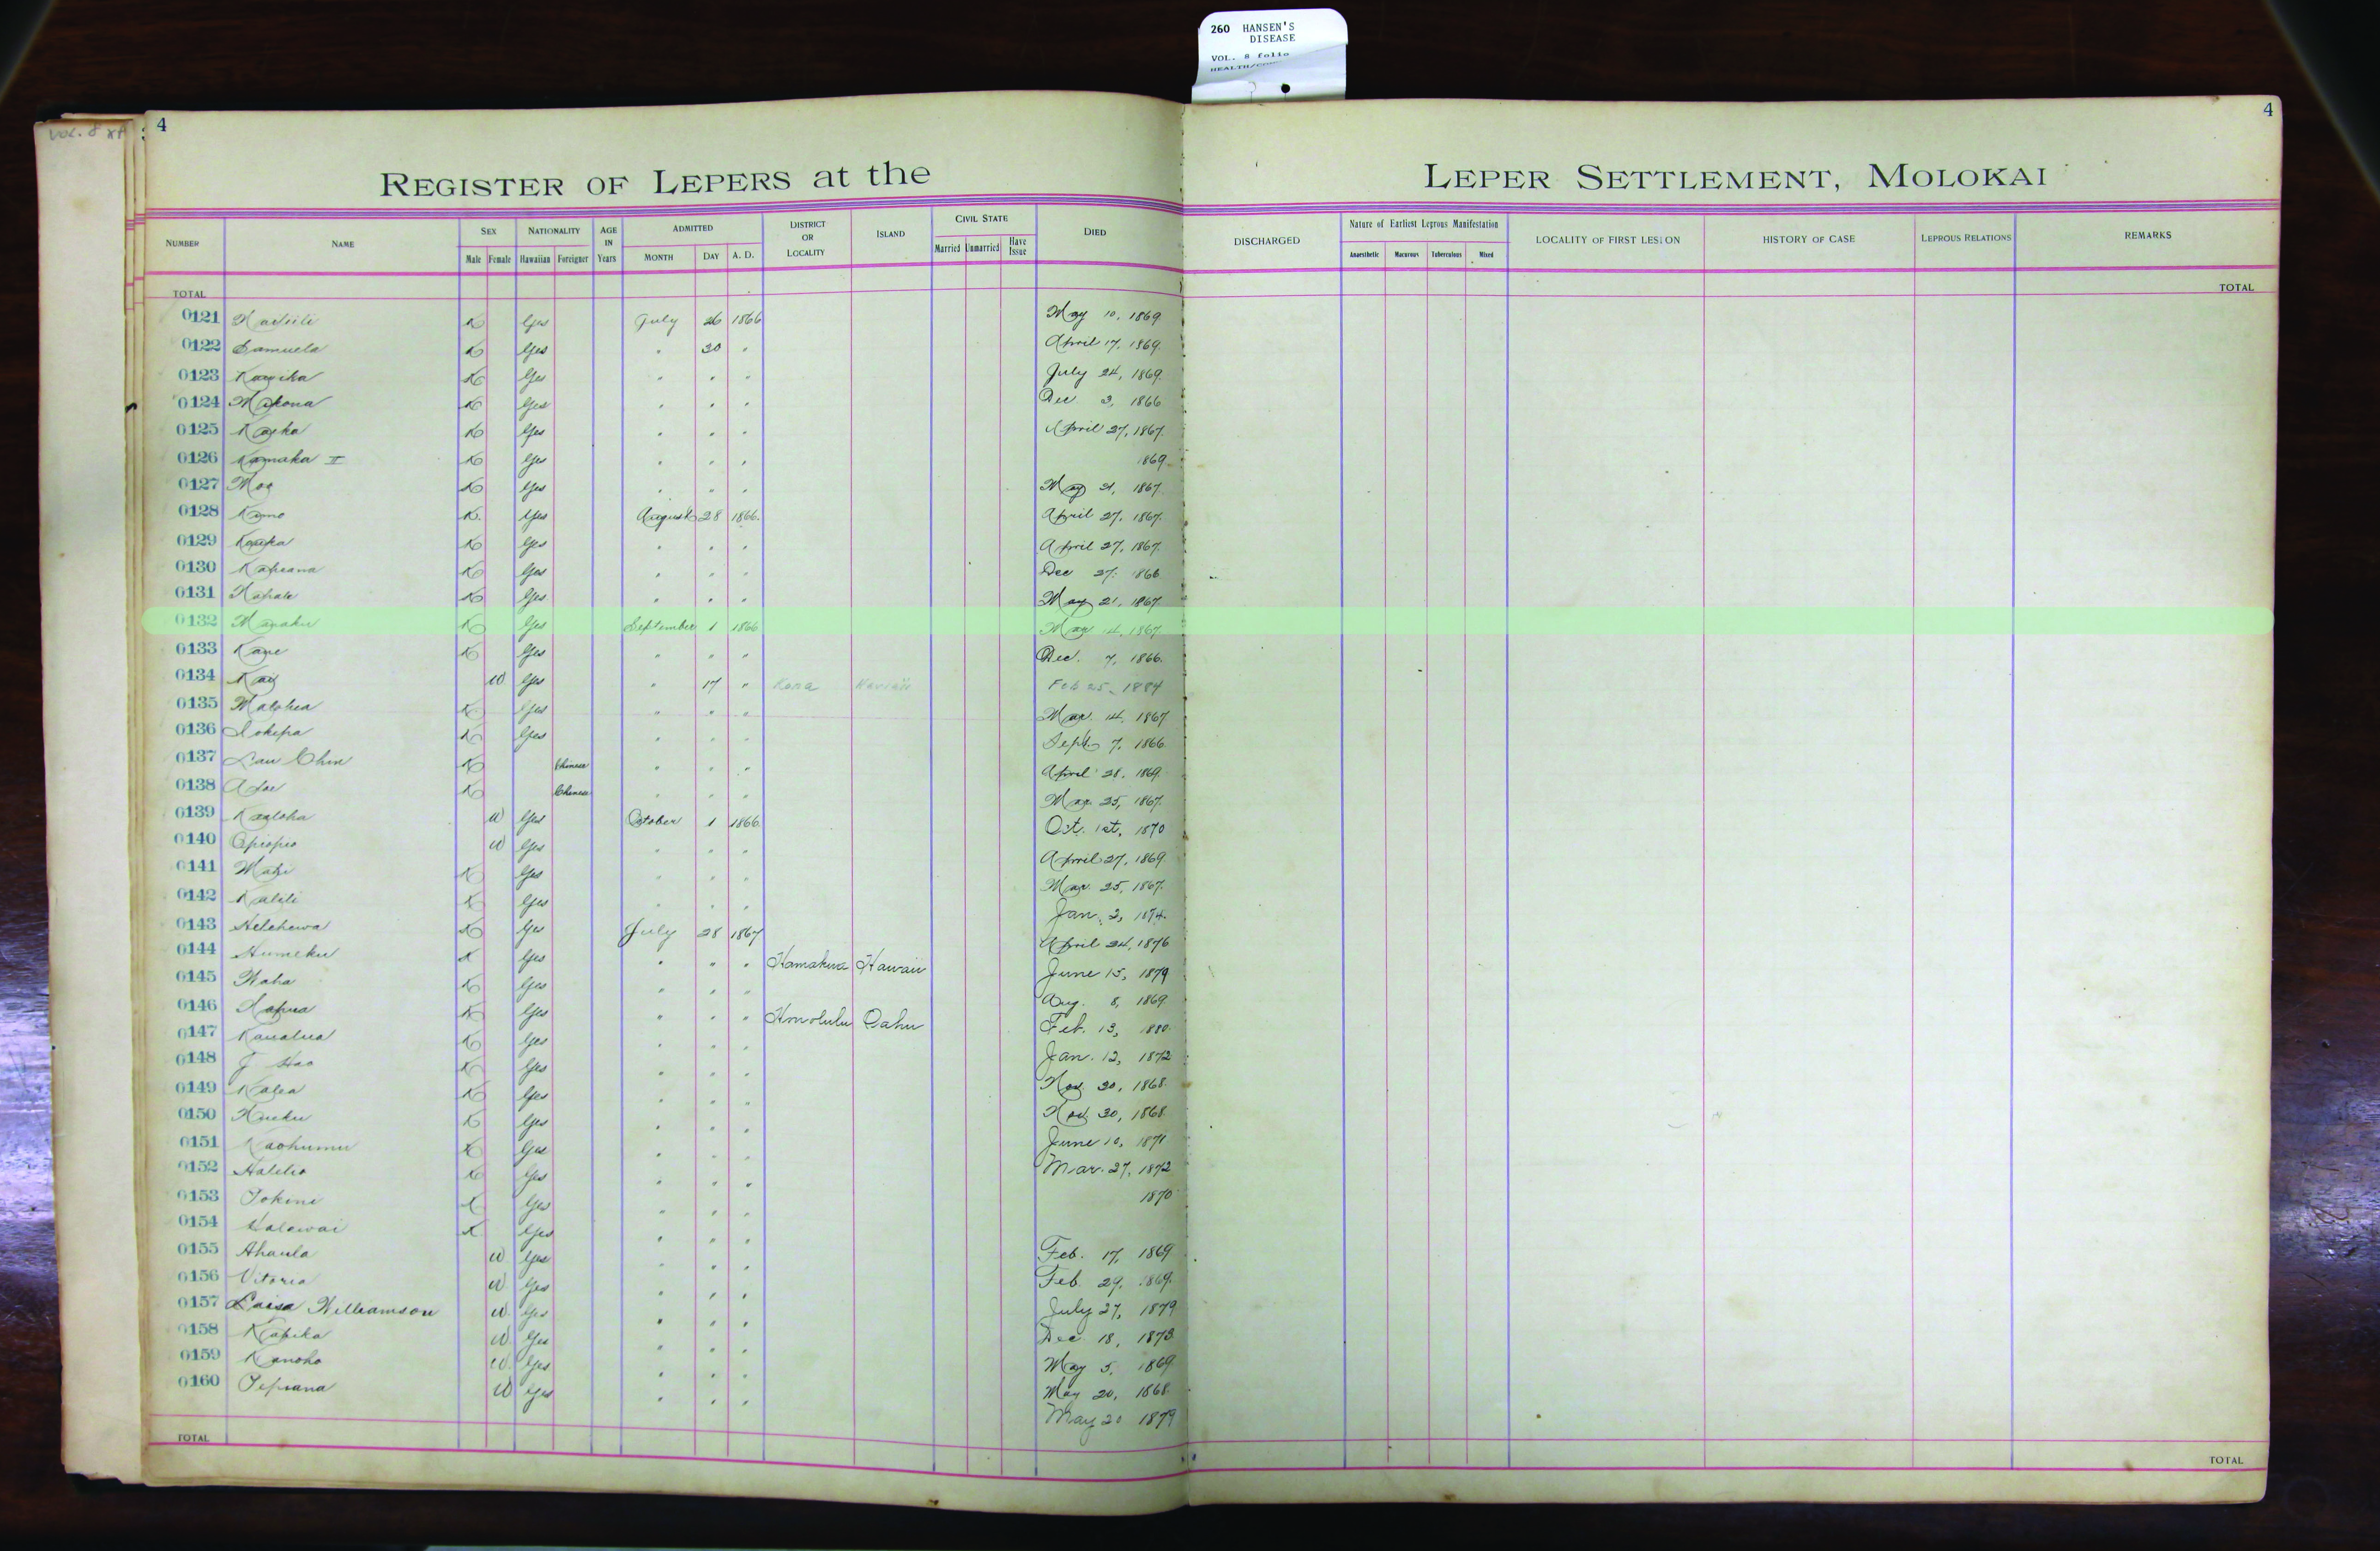 260 HANSEN'S
DISEASE
VOL. 8 folio
VOL. 8
4
4
REGISTER OF LEPERS at the LEPER SETTLEMENT, MOLOKAI
NUMBER NAME SEX Male Female NATIONALITY Hawaiian Foreigner AGE IN Years ADMITTED MONTH DAY A. D. DISTRICT OR LOCALITY ISLAND CIVIL STATE Married Unmarried Have Issue DIED DISCHARGED Nature of Earliest Leprous Manifestation Anaesthetic Macurous Tuberculous Mixed LOCALITY OF FIRST LESION HISTORY OF CASE LEPROUS RELATIONS REMARKS
TOTAL TOTAL
0121 K Yes July 26 1866 May 10, 1869
0122 Samuela K Yes " 30 " April 17, 1869.
0123 K Yes " " " July 24, 1869.
0124 K Yes " " " Dec 3, 1866
0125 K Yes " " " April 27, 1867.
0126 Kamaka II K Yes " " " 1869
0127 Moa K Yes " " " May 21, 1867.
0128 Kamo K. Yes August 28 1866. April 27, 1867.
0129 K Yes " " " April 27, 1867.
0130 Kapiana K Yes " " " Dec 27, 1866
0131 K Yes " " " May 21, 1867
0132 K Yes September 1 1866 Mar 14, 1867
0133 K Yes " " " Dec. 7, 1866.
0134 W. Yes " 17 " Kona Hawaii Feb 25, 1884
0135 K Yes " " " Mar. 14, 1867
0136 Iokepa K Yes " " " Sept. 7, 1866
0137 Lau Chin K Chinese " " " April 28, 1869.
0138 K Chinese " " " Mar 25, 1867.
0139 Kaaloha W Yes October 1 1866. Oct. 1st, 1870
0140 Opiopio W Yes " " " April 27, 1869.
0141 K Yes " " " Mar. 25, 1867.
0142 Kalili K Yes " " " Jan. 2, 1874.
0143 Helehewa K Yes July 28 1867 April 24, 1876
0144 Humeku K Yes " " " Hamakua Hawaii June 15, 1879
0145 Waha K Yes " " " Aug. 8, 1869.
0146 K Yes " " " Honolulu Oahu Feb. 13, 1880.
0147 Kaualua K Yes " " " Jan. 12, 1872
0148 J Hao K Yes " " " Nov. 30, 1868.
0149 Kalea K Yes " " " Nov 30, 1868.
0150 K Yes " " " June 10, 1871
0151 Kaohumu K Yes " " " Mar. 27, 1872
0152 Halelio K Yes " " " 1870
0153 K Yes " " "
0154 Halawai K. Yes " " " Feb. 17, 1869
0155 Ahaula W. Yes " " " Feb. 29, 1869.
0156 Vitoria W Yes " " " July 27, 1879
0157 Luisa Williamson W. Yes " " " Dec. 18, 1873.
0158 Kapika W. Yes " " " May 5, 1869
0159 Kanoho W. Yes " " " May 20, 1868.
0160 W Yes " " " May 20 1879
TOTAL TOTAL